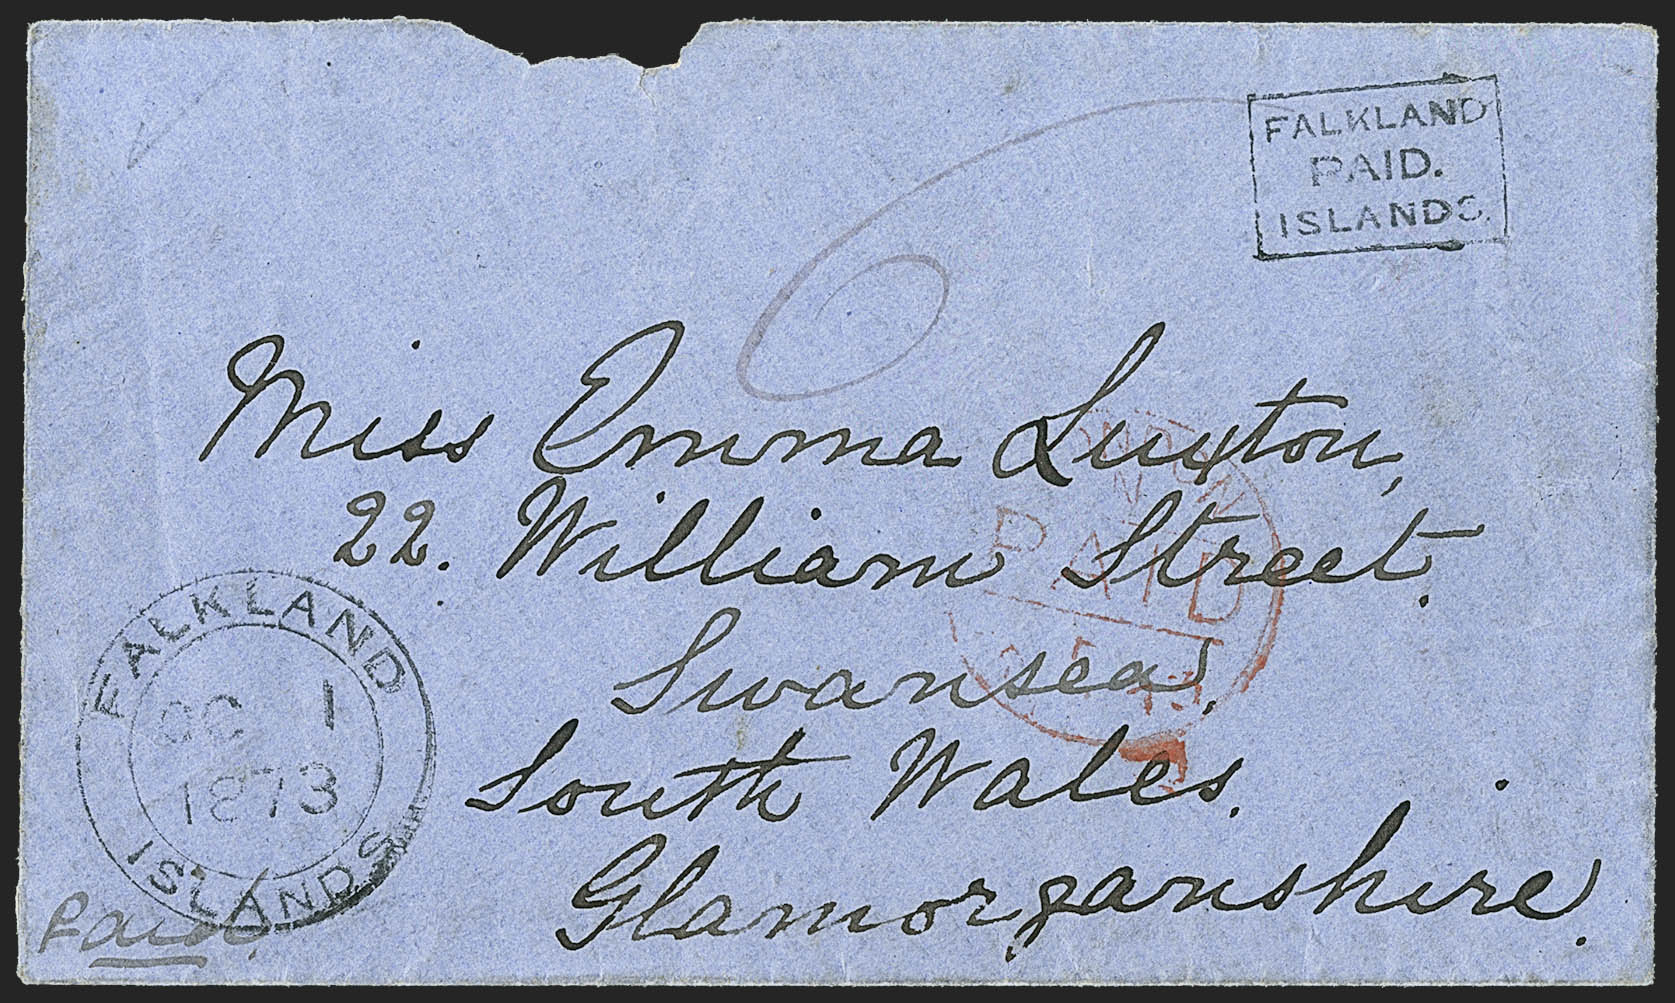 FALKLAND
PAID.
ISLANDS.
6
Miss Emma Luxton,
22. William Street.
Swansea.
South Wales.
Glamorganshire.
LONDON
N
PAID
FALKLAND
OC 1
1873
ISLANDS
Paid.